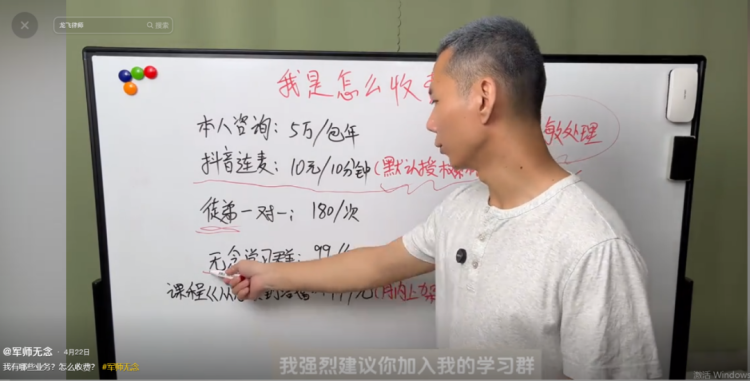 龙飞律师
搜索
我是怎么收
本人咨询：5万/包年
抖音连麦：10元/10分钟(默认授权
敏处理
徒弟一对一：180/次
无念学习群：99/
课程《从
元(月内上架
我强烈建议你加入我的学习群
@军师无念 · 4月22日
我有哪些业务？怎么收费？ #军师无念
激活 Windows